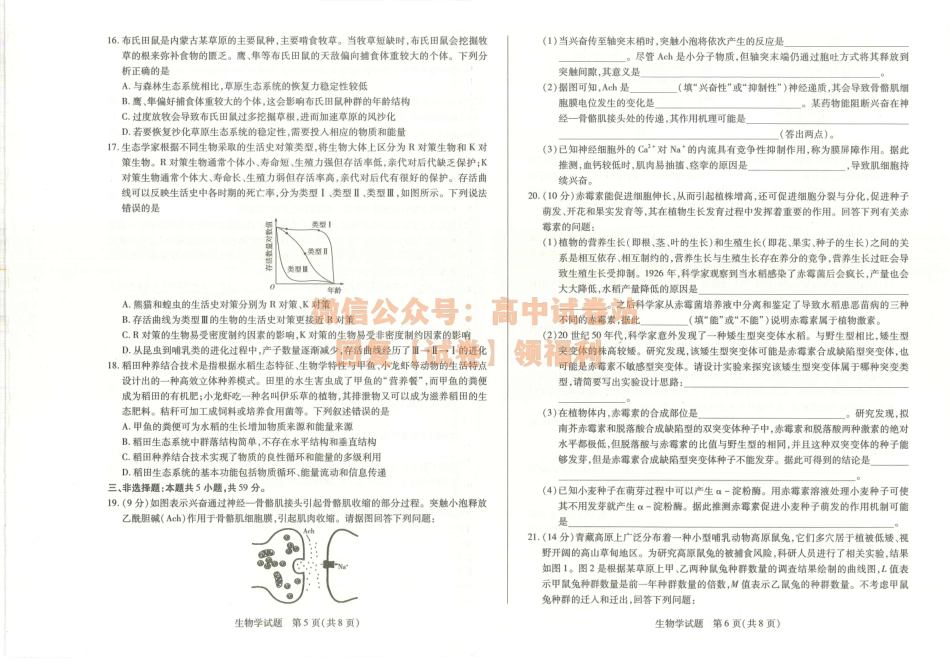 16. 布氏田鼠是内蒙古某草原的主要鼠种,主要啃食牧草。当牧草短缺时,布氏田鼠会挖掘牧
草的根来弥补食物的匮乏。鹰、隼等布氏田鼠的天敌偏向捕食体重较大的个体。下列分
析正确的是
A. 与森林生态系统相比,草原生态系统的恢复力稳定性较低
B. 鹰、隼偏好捕食体重较大的个体,这会影响布氏田鼠种群的年龄结构
C. 过度放牧会导致布氏田鼠过多挖掘草根,进而加速草原的风沙化
D. 若要恢复沙化草原生态系统的稳定性,需要投入相应的物质和能量
17. 生态学家根据不同生物采取的生活史对策类型,将生物大体上区分为 R 对策生物和 K 对
策生物。R 对策生物通常个体小、寿命短、生殖力强但存活率低,亲代对后代缺乏保护;K
对策生物通常个体大、寿命长、生殖力弱但存活率高,亲代对后代有很好的保护。存活曲
线可以反映生活史中各时期的死亡率,分为类型Ⅰ、类型Ⅱ、类型Ⅲ,如图所示。下列说法
错误的是
存活数量对数值
类型Ⅰ
类型Ⅱ
类型Ⅲ
O
年龄
A. 熊猫和蝗虫的生活史对策分别为 R 对策、K 对策
B. 存活曲线为类型Ⅲ的生物的生活史对策更接近 R 对策
C. R 对策的生物易受密度制约因素的影响,K 对策的生物易受非密度制约因素的影响
D. 从昆虫到哺乳类的进化过程中,产子数量逐渐减少,存活曲线经历了Ⅲ→Ⅱ→Ⅰ的进化
18. 稻田种养结合技术是指根据水稻生态特征、生物学特性与甲鱼、小龙虾等动物的生活特点
设计出的一种高效立体种养模式。田里的水生害虫成了甲鱼的“营养餐”,而甲鱼的粪便
成为稻田的有机肥;小龙虾吃一种名叫伊乐草的植物,其排泄物又可以成为滋养稻田的生
态肥料。秸秆可加工成饲料或培养食用菌等。下列叙述错误的是
A. 甲鱼的粪便可为水稻的生长增加物质来源和能量来源
B. 稻田生态系统中群落结构简单,不存在水平结构和垂直结构
C. 稻田种养结合技术实现了物质的良性循环和能量的多级利用
D. 稻田生态系统的基本功能包括物质循环、能量流动和信息传递
三、非选择题:本题共 5 小题,共 59 分。
19. (9 分)如图表示兴奋通过神经—骨骼肌接头引起骨骼肌收缩的部分过程。突触小泡释放
乙酰胆碱(Ach)作用于骨骼肌细胞膜,引起肌肉收缩。请据图回答下列问题:
Ach
Na⁺
生物学试题 第 5 页(共 8 页)
(1)当兴奋传至轴突末梢时,突触小泡将依次产生的反应是
。尽管 Ach 是小分子物质,但轴突末端仍通过胞吐方式将其释放到
突触间隙,其意义是 。
(2)据图可知,Ach 是 (填“兴奋性”或“抑制性”)神经递质,其会导致骨骼肌细
胞膜电位发生的变化是 。某药物能阻断兴奋在神
经—骨骼肌接头处的传递,其作用机理可能是
(答出两点)。
(3)已知神经细胞外的 Ca²⁺ 对 Na⁺ 的内流具有竞争性抑制作用,称为膜屏障作用。据此
推测,血钙较低时,肌肉易抽搐、痉挛的原因是 ,导致肌细胞持
续兴奋。
20. (10 分)赤霉素能促进细胞伸长,从而引起植株增高,还可促进细胞分裂与分化,促进种子
萌发、开花和果实发育等,其在植物生长发育过程中发挥着重要的作用。回答下列有关赤
霉素的问题:
(1)植物的营养生长(即根、茎、叶的生长)和生殖生长(即花、果实、种子的生长)之间的关
系是相互依存、相互制约的,营养生长与生殖生长存在养分的竞争,营养生长过旺会导
致生殖生长受抑制。1926 年,科学家观察到当水稻感染了赤霉菌后会疯长,产量也会
大大降低,水稻产量降低的原因是
。之后科学家从赤霉菌培养液中分离和鉴定了导致水稻患恶苗病的三种
不同的赤霉素,据此 (填“能”或“不能”)说明赤霉素属于植物激素。
(2)20 世纪 50 年代,科学家意外发现了一种矮生型突变体水稻。与野生型相比,矮生型
突变体的株高较矮。研究发现,该矮生型突变体可能是赤霉素合成缺陷型突变体,也
可能是赤霉素不敏感型突变体。请设计实验来探究该矮生型突变体属于哪种突变类
型,请简要写出实验设计思路:
。
(3)在植物体内,赤霉素的合成部位是 。研究发现,拟
南芥赤霉素和脱落酸合成缺陷型的双突变体种子中,赤霉素和脱落酸两种激素的绝对
水平都极低,但脱落酸与赤霉素的比值与野生型的相同,并且这种双突变体的种子能
够发芽,但是赤霉素合成缺陷型突变体种子不能发芽。据此可得到的结论是
。
(4)已知小麦种子在萌芽过程中可以产生 α－淀粉酶。用赤霉素溶液处理小麦种子可使
其不用发芽就产生 α－淀粉酶。据此推测赤霉素促进小麦种子萌发的作用机制可能
是 。
21. (14 分)青藏高原上广泛分布着一种小型哺乳动物高原鼠兔,它们多穴居于植被低矮、视
野开阔的高山草甸地区。为研究高原鼠兔的被捕食风险,科研人员进行了相关实验,结果
如图 1。图 2 是根据某草原上甲、乙两种鼠兔种群数量的调查结果绘制的曲线图,L 值表
示甲鼠兔种群数量是前一年种群数量的倍数,M 值表示乙鼠兔的种群数量。不考虑甲鼠
兔种群的迁入和迁出,回答下列问题:
生物学试题 第 6 页(共 8 页)
微信公众号：高中试卷站